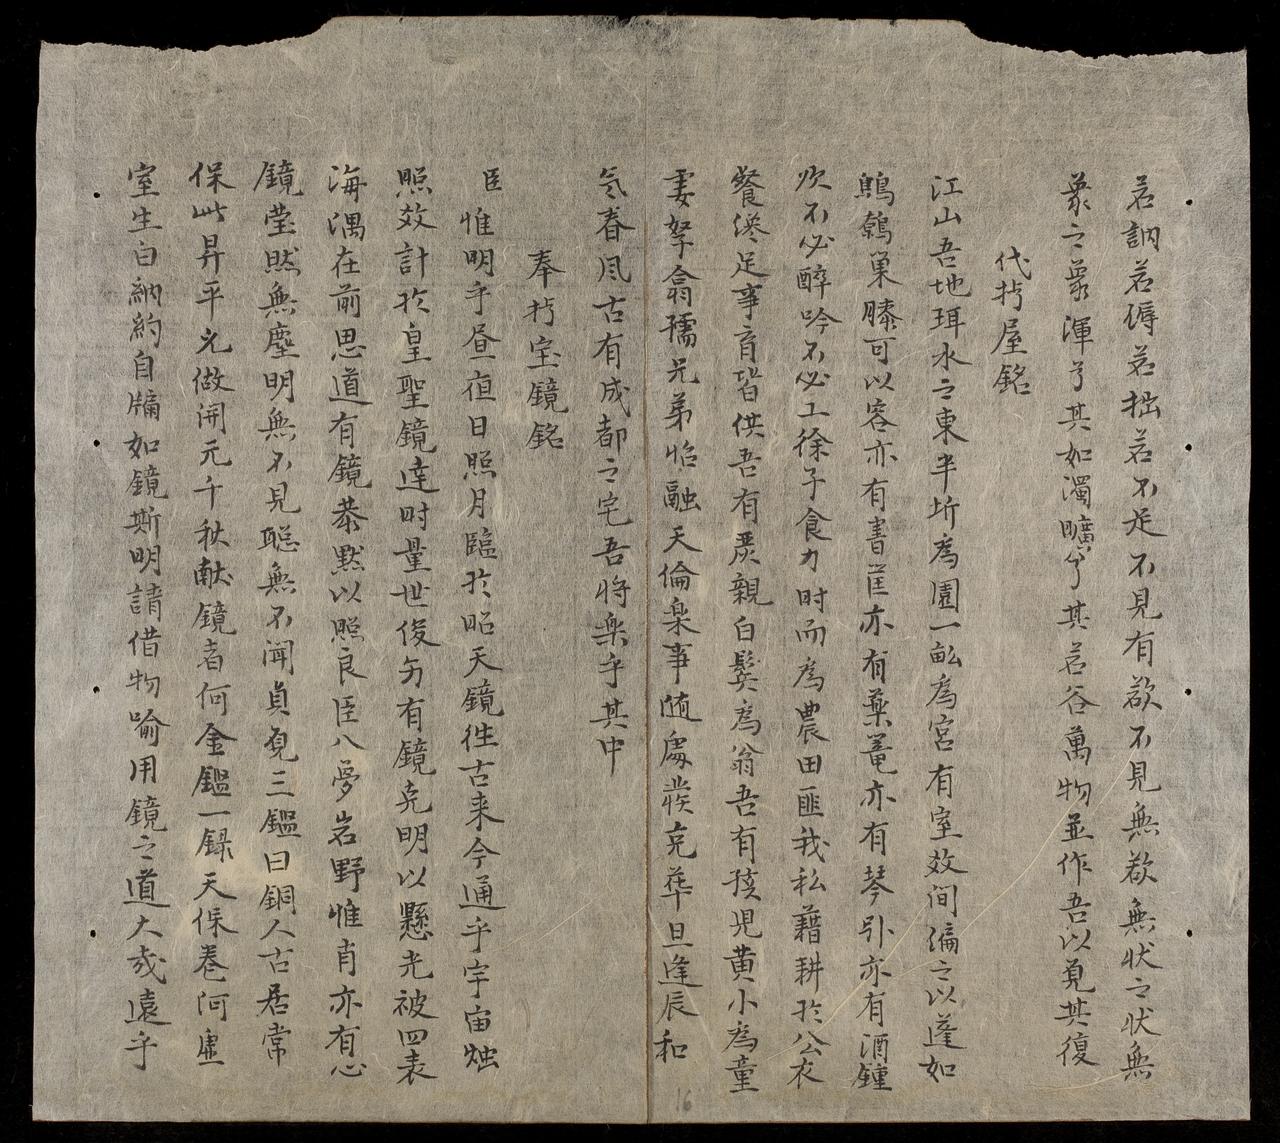 若訥若辱若拙若不足不見有欲不見無欲無状之状無
象之象渾兮其如濁曠兮其若谷萬物並作吾以覓其復
代㧣屋銘
江山吾地珥水之東半圻為園一畝為宮有室效间徧之以蓬如
鷦鷯巢膝可以容亦有書𠥔亦有藥菴亦有琴引亦有酒鍾
欢不必醉吟不必工徐子食力时而為農田匪我私藉耕於公衣
餐湌足事育皆供吾有嚴親白鬓為翁吾有孩児黄小為童
妻孥翕孺兄弟怡融天倫楽事随處裝充葬旦逢辰和
气春风古有成都之宅吾将楽乎其中
奉㧣宝鏡銘
臣惟明乎昼夜日照月臨於昭天鏡徃古来今通乎宇宙烛
照效計於皇聖鏡達时量世俊穷有鏡克明以懸光被四表
海隅在前思道有鏡恭黙以照良臣入夢岩野惟肖亦有心
鏡莹然無塵明無不見聡無不闻貞覌三鑑曰銅人古居常
保此昇平允做闭元千秋献鏡者何金鑑一録天保巻阿虚
室生白納約自牖如鏡斯明請借物喻用鏡之道大哉遠乎
16